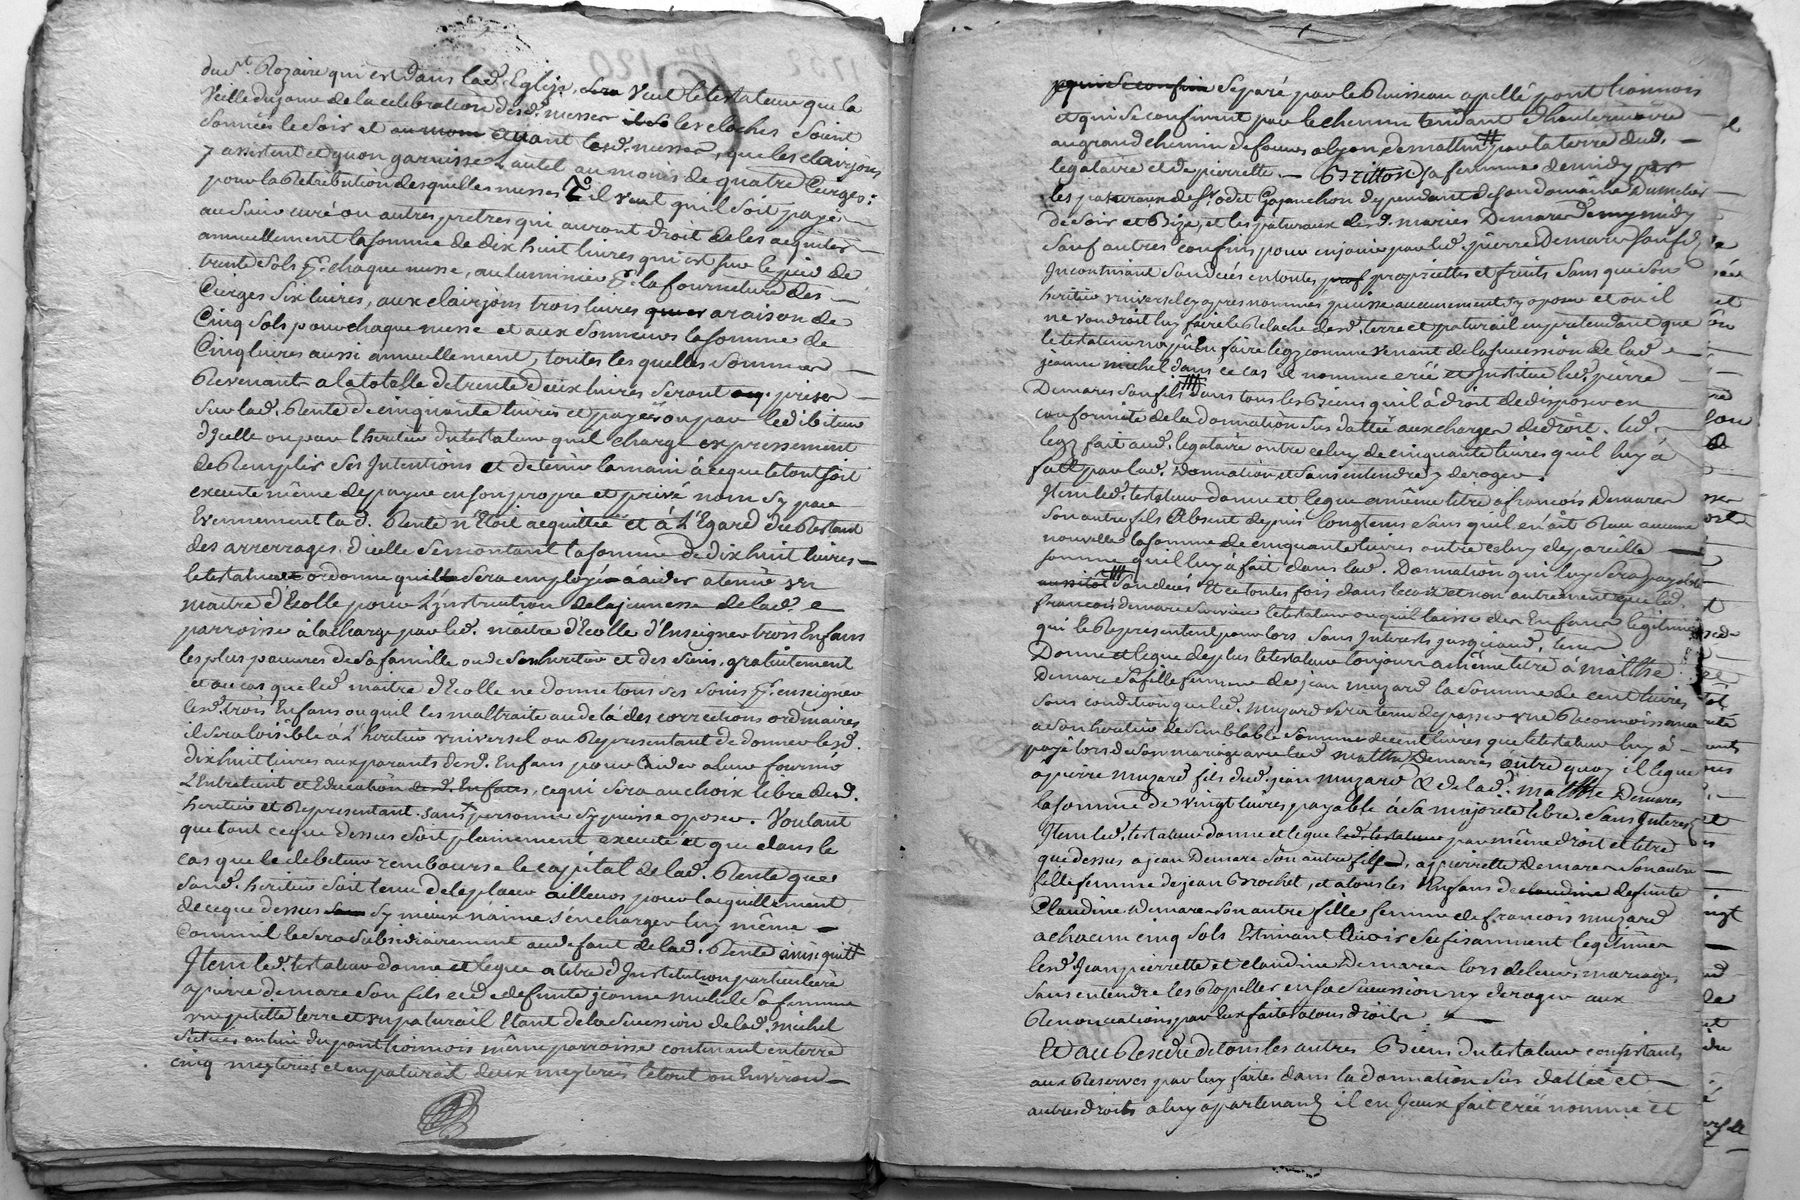 du St. Rozaire qui est dans lad. Eglise, sera veut le testateur que la
veille du jour de la celebration desd. messes il so les cloches soient
sonnées le soir et au mom avant lesd. messes, que les clairjons
y assistent et quon garnisse L'autel au moins de quatre Cierges;
pour la Retribution desquelles messes il veut quil soit payé
au Sieur curé ou autres pretres qui auront droit de les acquiter
annuellement la somme de dix huit livres qui est sur le pied de
trente sols pr. chaque messe, au luminier pr. la fourniture des
Cierges six livres, aux clairjons trois livres a raison de
Cinq sols pour chaque messe et aux sonneurs la somme de
Cinq livres aussi annuellement, toutes lesquelles sommes
Revenant a la totalle de trente deux livres seront prises
sur lad. Rente de cinquante livres et payées ou par le débiteur
d'ycelle ou par l'heritier du testateur quil charge expressement
de Remplir ses Intentions et de tenir la main à ce que le tout soit
executé même de payer en son propre et privé nom sy par
Evennement lad. Rente n'Etoit acquittée et à L'Egard du Restant
des arrerages d'icelle se montant la somme de dix huit livres
le testateur ordonne quil sera employé à aider a tenir un
maitre d'Ecolle pour L'ynstruction de la jeunesse de lad.
parroisse à la charge par led. maitre d'Ecolle d'Enseigner trois Enfans
les plus pauvres de sa famille ou de son heritier et des siens, gratuitement
et au cas que led. maitre d'Ecolle ne donne tous ses soins pr. enseigner
lesd. trois Enfans ou quil les maltraite au dela des corrections ordinaires
il sera loisible à L'heritier universel ou Representant de donner lesd.
dix huit livres aux parants desd. Enfans pour aider a leur fournir
L'Entretient et Education desd. Enfans, ce qui sera au choix libre dud.
heritier et Representant sans personne sy puisse oposer. Voulant
que tout ce que dessus soit plainement executé et que dans le
cas que le debiteur rembourse le capital de lad. Rente que
sond. heritier soit tenu de le placer ailleurs pour lacquittement
de ce que dessus sy mieux n'aime s'en charger luy même
Comm'il le sera subsidiairement au defaut de lad. Rente
Item led. testateur donne et legue a titre d'Institution particuliere
a pierre demare son fils et de defunte jeanne michel sa femme
une petitte terre et un paturail Etant de la sucession de lad. michel
situés au lieu du pont lionnois même parroisse contenant en terre
cinq meyterées et en paturail deux meyterées le tout ou Environ
separé par le Ruisseau apellé pont lionnois
et qui se confinent par le chemin tendant
au grand chemin de a lyon de mattin par la terre dud.
legataire et de pierrette Britton sa femme de midy par
les pasturaux de Sr. odet Gojanchon dependant de son domaine
de soir et Bize, et les paturaux desd. mariés Demares
sauf autres confins pour en jouir par led. pierre Demares son fils
Incontinant son decés en toutes proprietes et fruits sans que son
heritier universel cy apres nommé puisse aucunement sy oposer et ou il
ne voudroit luy faire le Relache desd. terre et paturail en pretendant que
le testateur n'a pû En faire legz comme venant de la sucession de lad.
jeanne michel dans ce cas il nomme créé et Institue led. pierre
Demares son fils dans tous les Biens quil a droit de disposer en
conformité de la donnation sus dattée aux charges de droit. led.
legz fait aud. legataire outre celuy de cinquante livres quil luy a
fait par lad. Donnation et sans entendre y deroger.
Item led. testateur donne et legue a même titre a francois Demares
son autre fils Absent depuis longtems sans quil en ait Reu aucune
nouvelle la somme de cinquante livres outre celuy de pareille
somme quil luy à fait dans lad. Donnation qui luy sera payable
aussitot son decés Et ce toutes fois dans le cas et non autrement que led.
francois demare survive le testateur ou quil laisse des Enfans legitimes
qui le Representent pour lors sans Interests jusqu'aud. tems
Donne et legue de plus le testateur toujours a même titre à matthie
demare sa fille femme de jean muzard la somme de cent livres
sous condition que led. muzard sera tenu de passer une Reconnoissance
a son heritier de semblable somme de cent livres que le testateur luy à
payé lors de son mariage avec lad. matthie Demares outre quoy il legue
a pierre muzard fils dud. jean muzard & de lad. matthie Demares
la somme de vingt livres payable à sa majorité libre, sans Interest
Item led. testateur donne et legue led. testateur par même droit et titre
que dessus a jean Demare son autre fils, a pierrette demare son autre
fille femme de jean Brochet, et a tous les Enfans de claudine defunte
Claudine demare son autre fille femme de francois muzard
a chacun cinq sols Estimant Avoir sufisamment legitimer
lesd. Jean pierrette et claudine Demare lors de leurs mariages,
sans entendre les Rapeller en sa sucession ny deroger aux
Renonciations par Eux faites a tous droits
Et au Residû de tous les autres Biens du testateur consistants
aux Reserves par luy faites dans la donnation sus dattée et
autres droits a luy apartenant il en Jceux fait créé nomme et